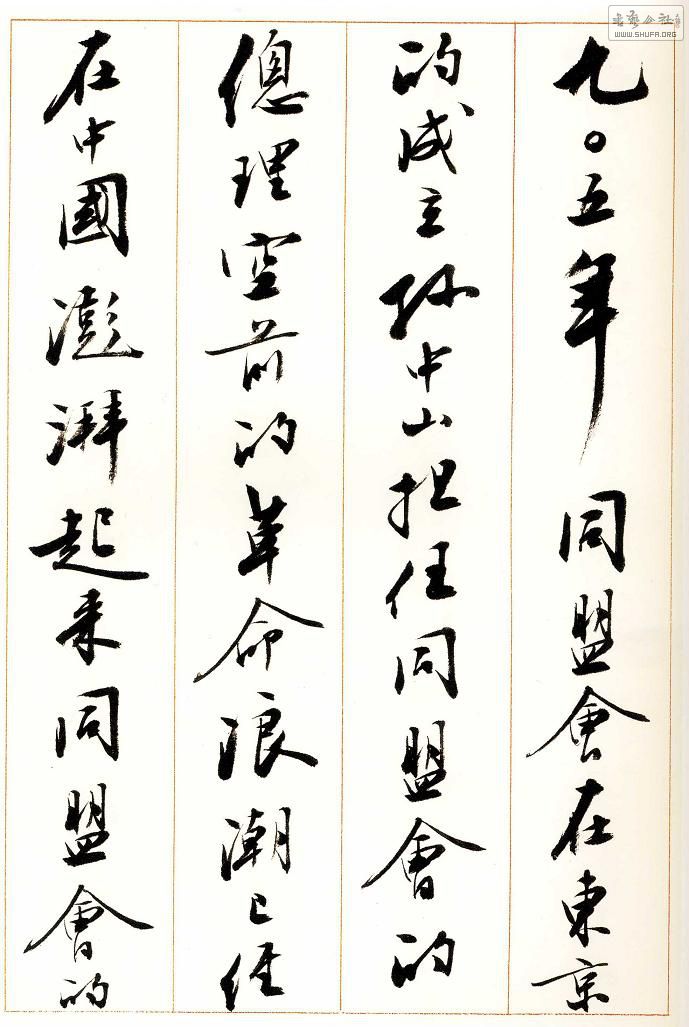 九〇五年同盟會在東京
的成立孙中山担任同盟會的
總理空前的革命浪潮已经
在中國澎湃起来同盟會的
書藝公社
WWW.SHUFA.ORG